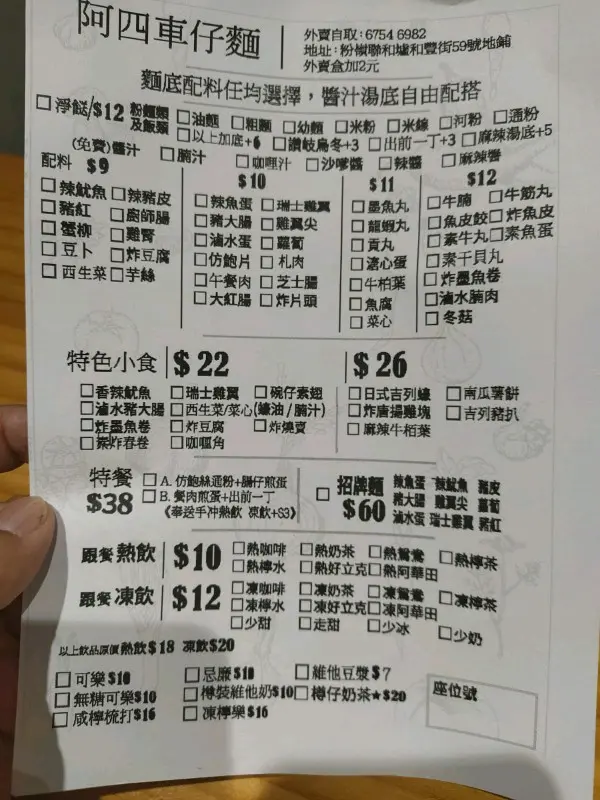 阿四車仔麵
外賣自取:6754 6982
地址:粉嶺聯和墟和豐街59號地鋪
外賣盒加2元
麵底配料任均選擇，醬汁湯底自由配搭
□淨餸/$12 粉麵類及飯類 □油麵 □粗麵 □幼麵 □米粉 □米線 □河粉 □通粉
□以上加底+6 □讚岐烏冬+3 □出前一丁+3 □麻辣湯底+5
(免費)醬汁 □腩汁 □咖喱汁 □沙嗲醬 □辣醬 □麻辣醬
配料 $9
□辣魷魚 □辣豬皮
□豬紅 □廚師腸
□蟹柳 □雞腎
□豆卜 □炸豆腐
□西生菜 □芋絲
$10
□辣魚蛋 □瑞士雞翼
□豬大腸 □雞翼尖
□滷水蛋 □蘿蔔
□仿鮑片 □札肉
□午餐肉 □芝士腸
□大紅腸 □炸片頭
$11
□墨魚丸
□龍蝦丸
□貢丸
□溏心蛋
□牛柏葉
□魚腐
□菜心
$12
□牛腩 □牛筋丸
□魚皮餃 □炸魚皮
□素牛丸 □素魚蛋
□素干貝丸
□炸墨魚卷
□滷水腩肉
□冬菇
特色小食 $22
□香辣魷魚 □瑞士雞翼 □碗仔素翅
□滷水豬大腸 □西生菜/菜心(蠔油/腩汁)
□炸墨魚卷 □炸豆腐 □炸燒賣
□素炸春卷 □咖喱角
$26
□日式吉列蠔 □南瓜薯餅
□炸唐揚雞塊 □吉列豬扒
□麻辣牛柏葉
特餐 $38
□A. 仿鮑絲通粉+腸仔煎蛋
□B. 餐肉煎蛋+出前一丁
《奉送手冲熱飲 凍飲+$3》
□ 招牌麵 $60
辣魚蛋 辣魷魚 豬皮
豬大腸 雞翼尖 蘿蔔
滷水蛋 瑞士雞翼 豬紅
跟餐 熱飲 $10
□熱咖啡 □熱奶茶 □熱鴛鴦 □熱檸茶
□熱檸水 □熱好立克 □熱阿華田
跟餐 凍飲 $12
□凍咖啡 □凍奶茶 □凍鴛鴦 □凍檸茶
□凍檸水 □凍好立克 □凍阿華田
□少甜 □走甜 □少冰 □少奶
以上飲品原價 熱飲$18 凍飲$20
□可樂$10 □忌廉$10 □維他豆漿$7
□無糖可樂$10 □樽裝維他奶$10 □樽仔奶茶★$20
□咸檸梳打$16 □凍檸樂$16
座位號